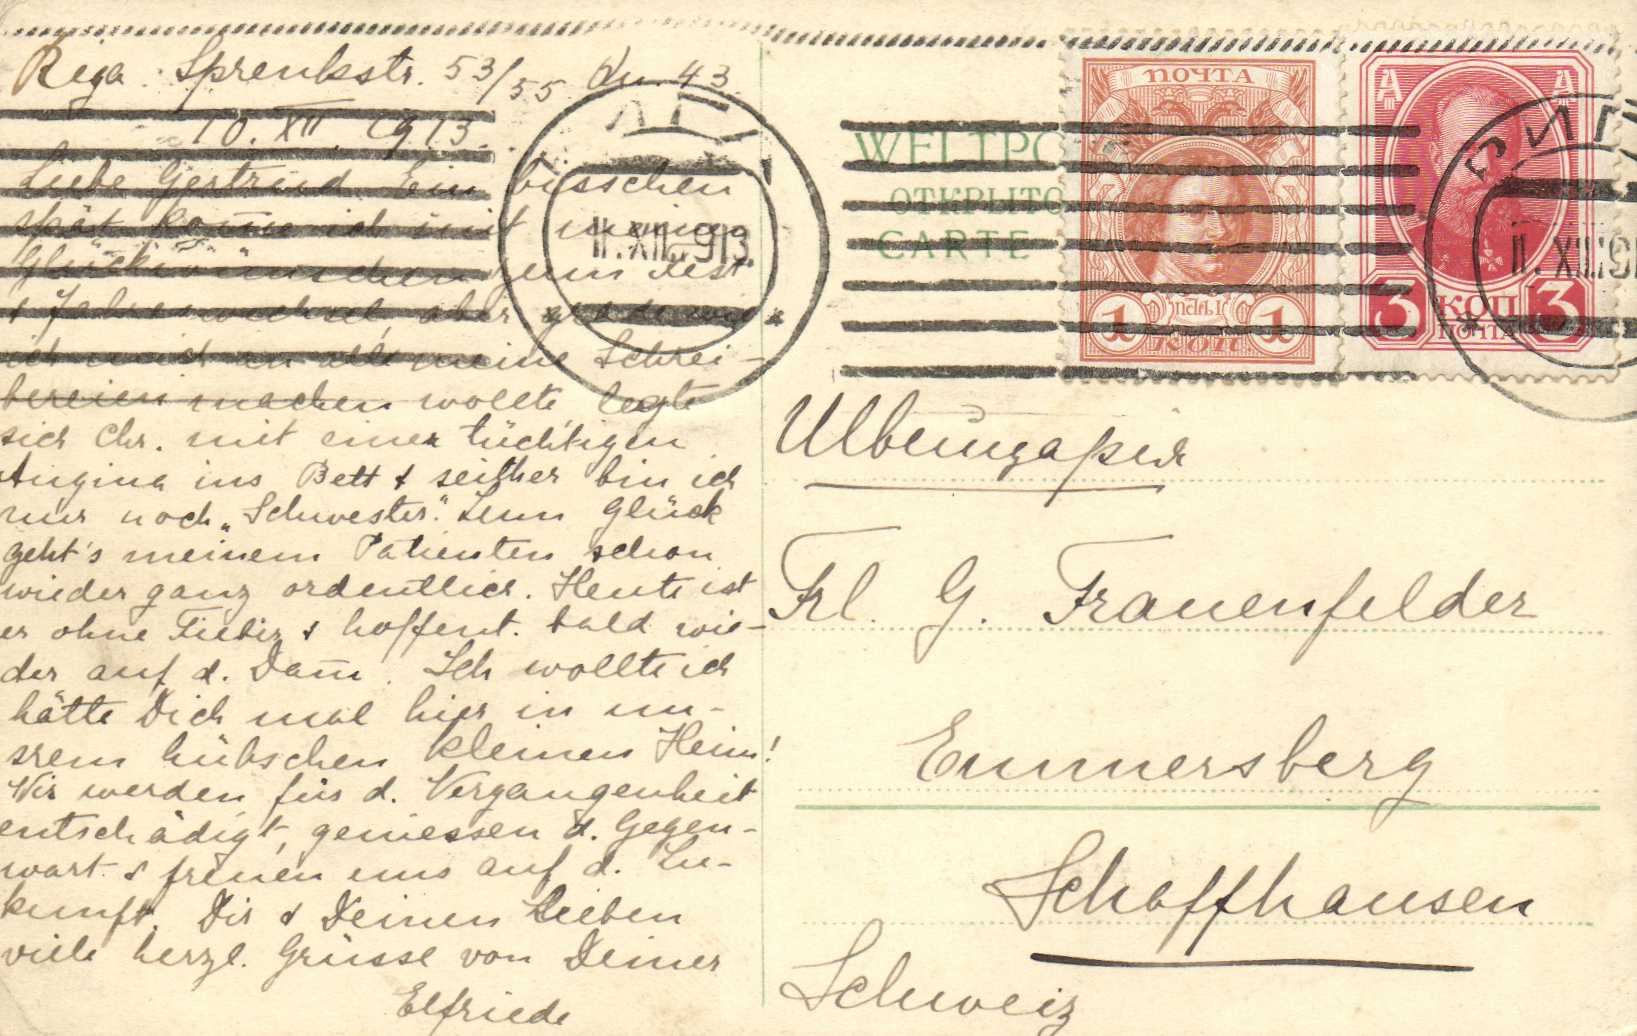 Riga. Sprenkstr. 53/55 Qu. 43
10. XII. 1913.
Liebe Gertrud. Ein bisschen
spät kom̄e ich mit meinen
Glückwünschen zum Fest
& Jahreswechsel, aber grade wie
ich mich an all meine Schrei-
bereien machen wollte, legte
sich Chr. mit einer tüchtigen
Angina ins Bett & seither bin ich
nur noch „Schwester". Zum Glück
geht's meinem Patienten schon
wieder ganz ordentlich. Heute ist
er ohne Fieber & hoffent. bald wie-
der auf d. Dam̄. Ich wollte ich
hätte Dich mal hier in un-
srem hübschen kleinen Heim!
Wir werden für d. Vergangenheit
entschädigt, geniessen d. Gegen-
wart & freuen uns auf d. Zu-
kunft. Dir & Deinen Lieben
viele herzl. Grüsse von Deiner
Elfriede
РИГА
11.XII.913.
WELTPO
ОТКРЫТО
CARTE
ПОЧТА
1 1
КОП
3 КОП 3
ПОЧТА
РИГА
11.XII.91
Швейцария
Frl. G. Frauenfelder
Emmersberg
Schaffhausen
Schweiz